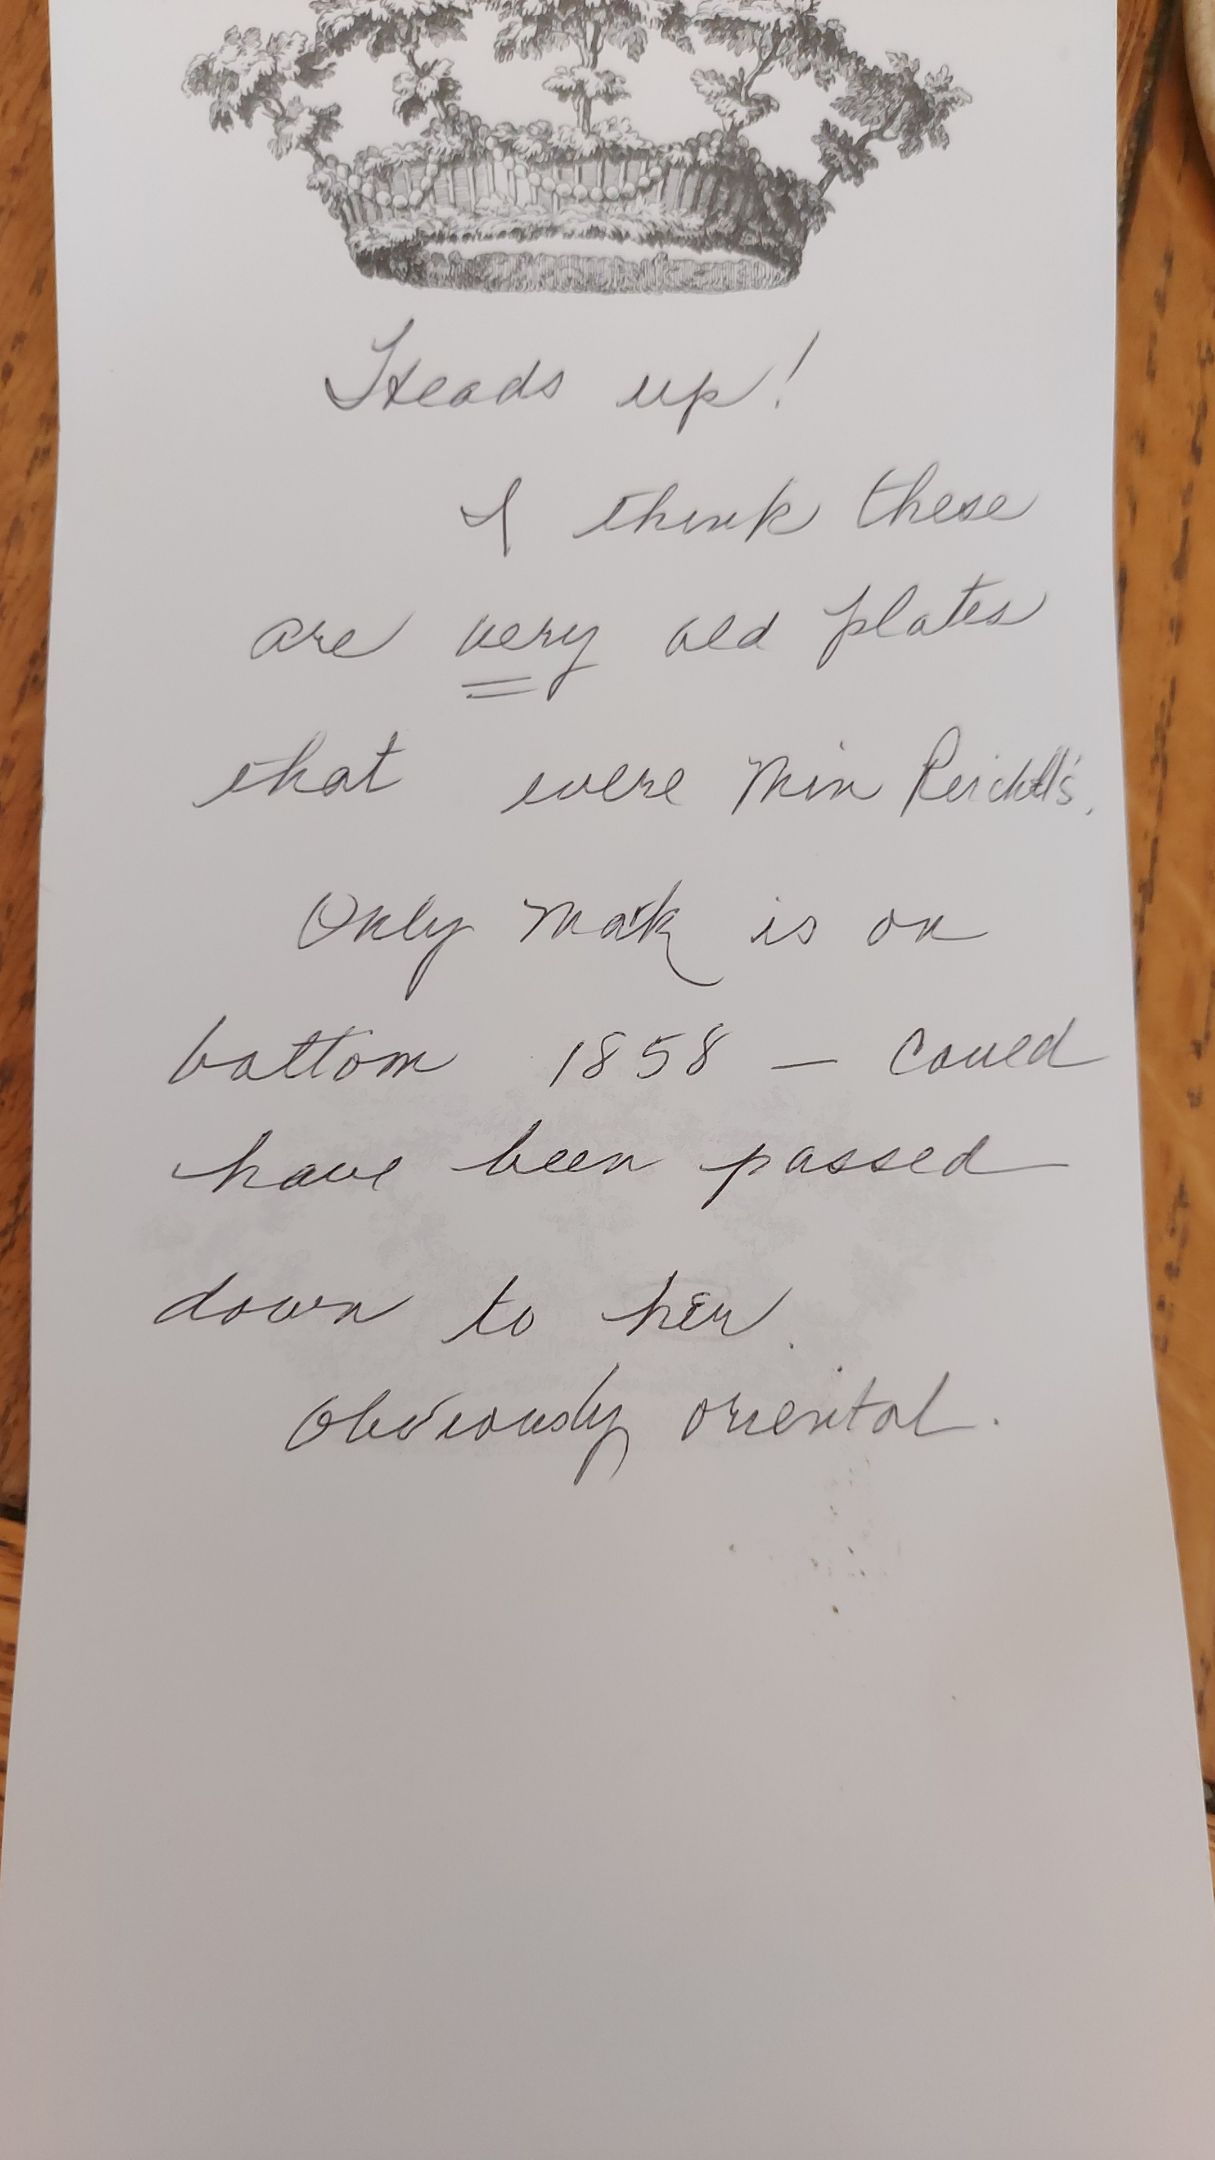 Heads up!
I think these
are very old plates
that were Min
Only mark is on
bottom 1858 — could
have been passed
down to her.
Obviously oriental.